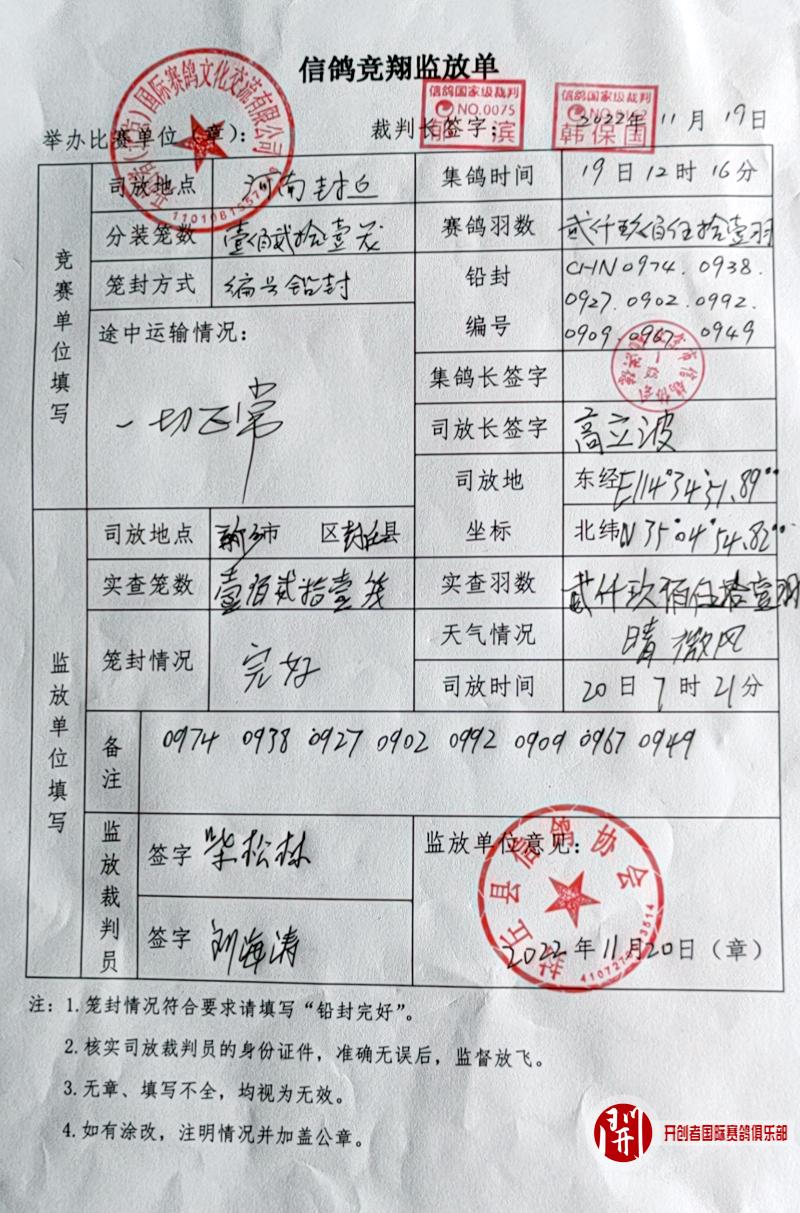 信鸽竞翔监放单
举办比赛单位（章）： 裁判长签字： 2022年11月19日
国际赛鸽文化交流有限公司
信鸽国家级裁判
NO.0075
滨
信鸽国家级裁判
韩保国
竞赛单位填写
司放地点 河南封丘 集鸽时间 19日12时16分
分装笼数 壹佰贰拾壹笼 赛鸽羽数 贰仟玖佰伍拾壹羽
笼封方式 编号铅封 铅封编号 CHN0974.0938.
0927.0902.0992.
0909.0967.0949
途中运输情况：
一切正常
集鸽长签字
司放长签字 高立波
司放地坐标 东经E114°34′51.89″
北纬N35°04′54.82″
监放单位填写
司放地点 新乡市 区封丘县
实查笼数 壹佰贰拾壹笼 实查羽数 贰仟玖佰伍拾壹羽
笼封情况 完好 天气情况 晴 微风
司放时间 20日7时21分
备注 0974 0938 0927 0902 0992 0909 0967 0949
监放裁判员 签字 柴松林 监放单位意见：
签字 刘海涛 2022年11月20日（章）
封丘县信鸽协会
注：1.笼封情况符合要求请填写“铅封完好”。
2.核实司放裁判员的身份证件，准确无误后，监督放飞。
3.无章、填写不全，均视为无效。
4.如有涂改，注明情况并加盖公章。
开创者国际赛鸽俱乐部